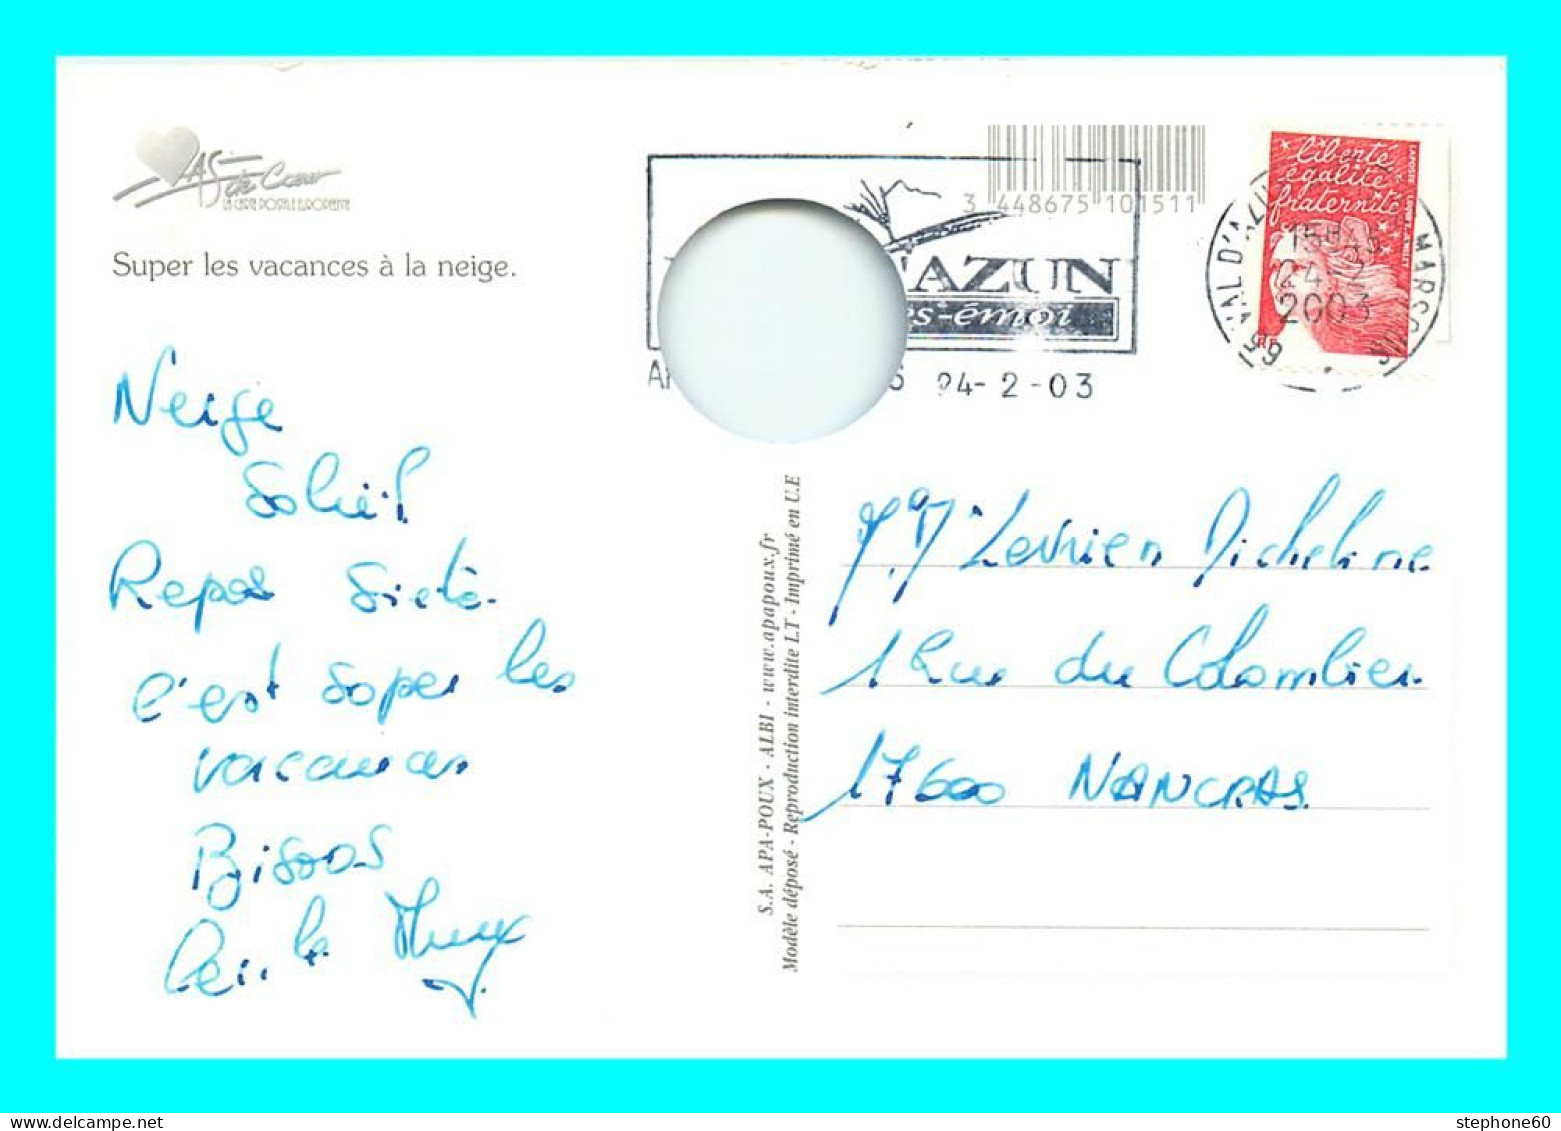 AS de Cœur
LA CARTE POSTALE EUROPEENNE
Super les vacances à la neige.
Neige
Soleil
Repos Sieste
c'est super les
vacances
Bisous
3 448675 101511
'AZUN
es-émoi
24-2-03
liberté
égalité
fraternité
RF
15H45
24-2
2003
65 VAL D'AZUN MARSOUS
S.A. APA-POUX - ALBI - www.apapoux.fr
Modèle déposé - Reproduction interdite LT - Imprimé en U.E
Micheline
1 Rue du Colombier
17600 NANCRAS
stephone60